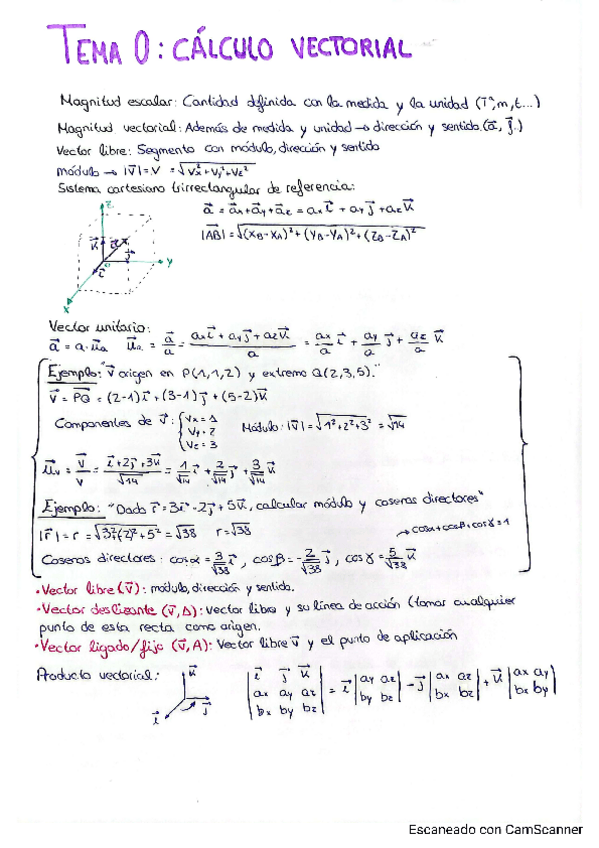 TEMA 0: CÁLCULO VECTORIAL
Magnitud escalar: Cantidad definida con la medida y la unidad (Tª, m, t...)
Magnitud vectorial: Además de medida y unidad → dirección y sentido. (a⃗, j⃗.)
Vector libre: Segmento con módulo, dirección y sentido
módulo → |v⃗| = v = √(vx² + vy² + vz²)
Sistema cartesiano trirrectangular de referencia:
a⃗ = a⃗x + a⃗y + a⃗z = ax i⃗ + ay j⃗ + az k⃗
|AB⃗| = √((xB - xA)² + (yB - yA)² + (zB - zA)²)
z
k⃗
j⃗
y
i⃗
x
Vector unitario:
a⃗ = a · u⃗a u⃗a = a⃗/a = (ax i⃗ + ay j⃗ + az k⃗)/a = ax/a i⃗ + ay/a j⃗ + az/a k⃗
Ejemplo: "v⃗ origen en P(1,1,2) y extremo Q(2,3,5)."
v⃗ = PQ⃗ = (2-1) i⃗ + (3-1) j⃗ + (5-2) k⃗
Componentes de v⃗: { vx = 1
vy = 2
vz = 3
Módulo: |v⃗| = √(1² + 2² + 3²) = √14
u⃗v = v⃗/v = (i⃗ + 2j⃗ + 3k⃗)/√14 = 1/√14 i⃗ + 2/√14 j⃗ + 3/√14 k⃗
Ejemplo: "Dado r⃗ = 3i⃗ - 2j⃗ + 5k⃗, calcular módulo y cosenos directores"
|r⃗| = r = √(3² + (2)² + 5²) = √38 r = √38
→ cosα + cosβ + cosγ = 1
Cosenos directores: cosα = 3/√38 i⃗, cosβ = -2/√38 j⃗, cosγ = 5/√38 k⃗
• Vector libre (v⃗): módulo, dirección y sentido.
• Vector deslizante (v⃗, Δ): vector libre y su línea de acción (tomar cualquier
punto de esta recta como origen.
• Vector ligado/fijo (v⃗, A): Vector libre v⃗ y el punto de aplicación
Producto vectorial:
k⃗
j⃗
i⃗
| i⃗ j⃗ k⃗ |
| ax ay az | = i⃗ |ay az| - j⃗ |ax az| + k⃗ |ax ay|
| bx by bz | |by bz| |bx bz| |bx by|
Escaneado con CamScanner